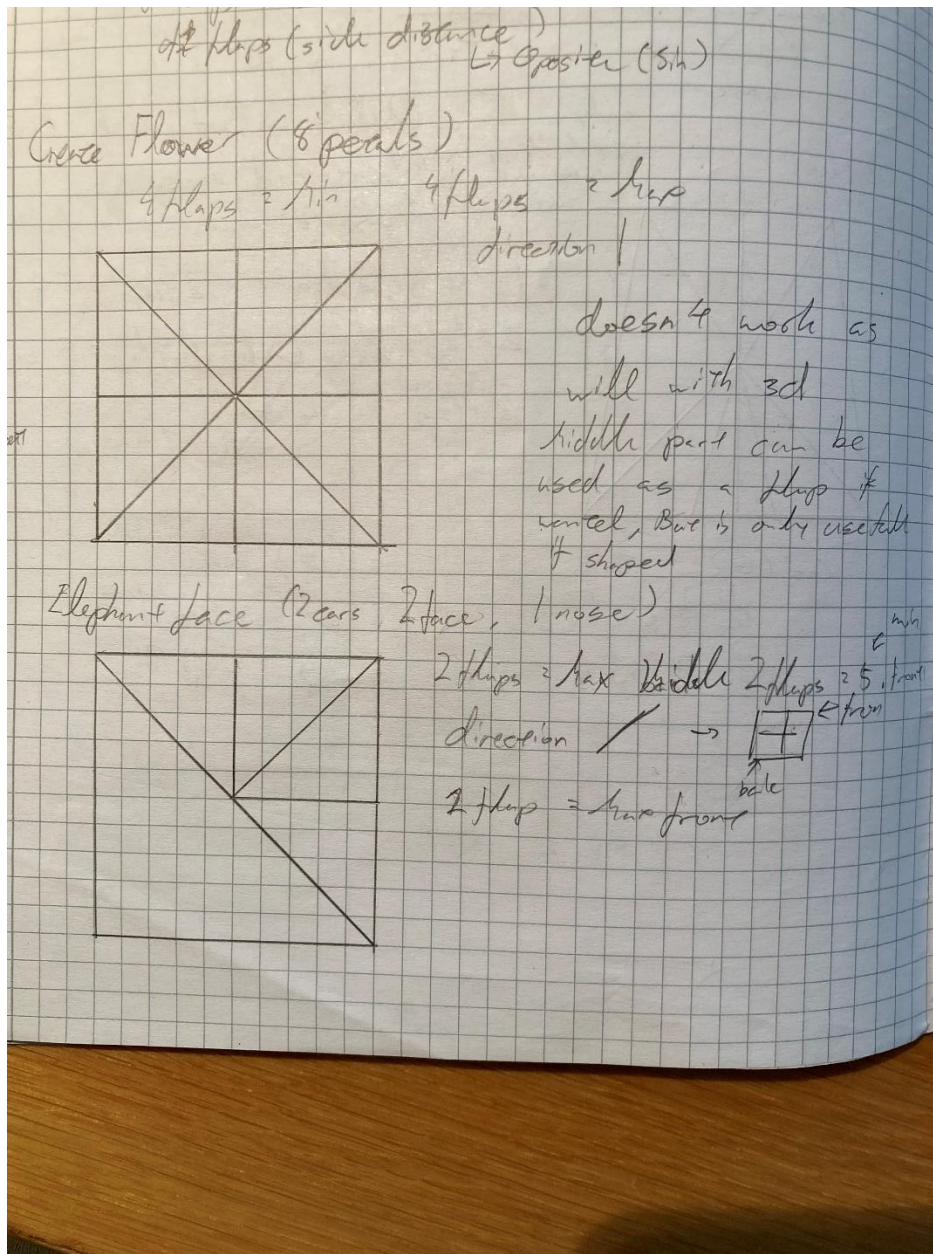 flaps (side distance)
↳ Oposite (Sin)
Create Flower (8 petals)
4 flaps = Min 4 flaps = Max
direction |
doesn4 work as
will with 3d
Middle part can be
used as a flap if
But is only usefull
if shaped
Elephant face (2 ears, 2 face, 1 nose)
min
2 flaps = Max Middle 2 flaps = 5, front
direction / → ← fron
back
1 flap = Max front